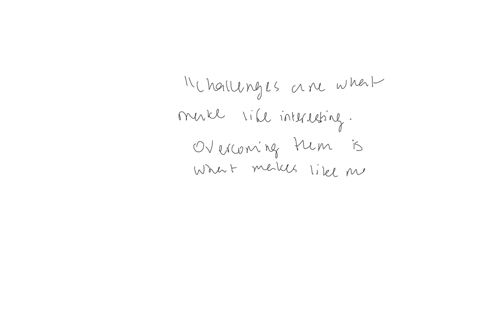 "Challenges are what
make life interesting.
Overcoming them is
what makes life me